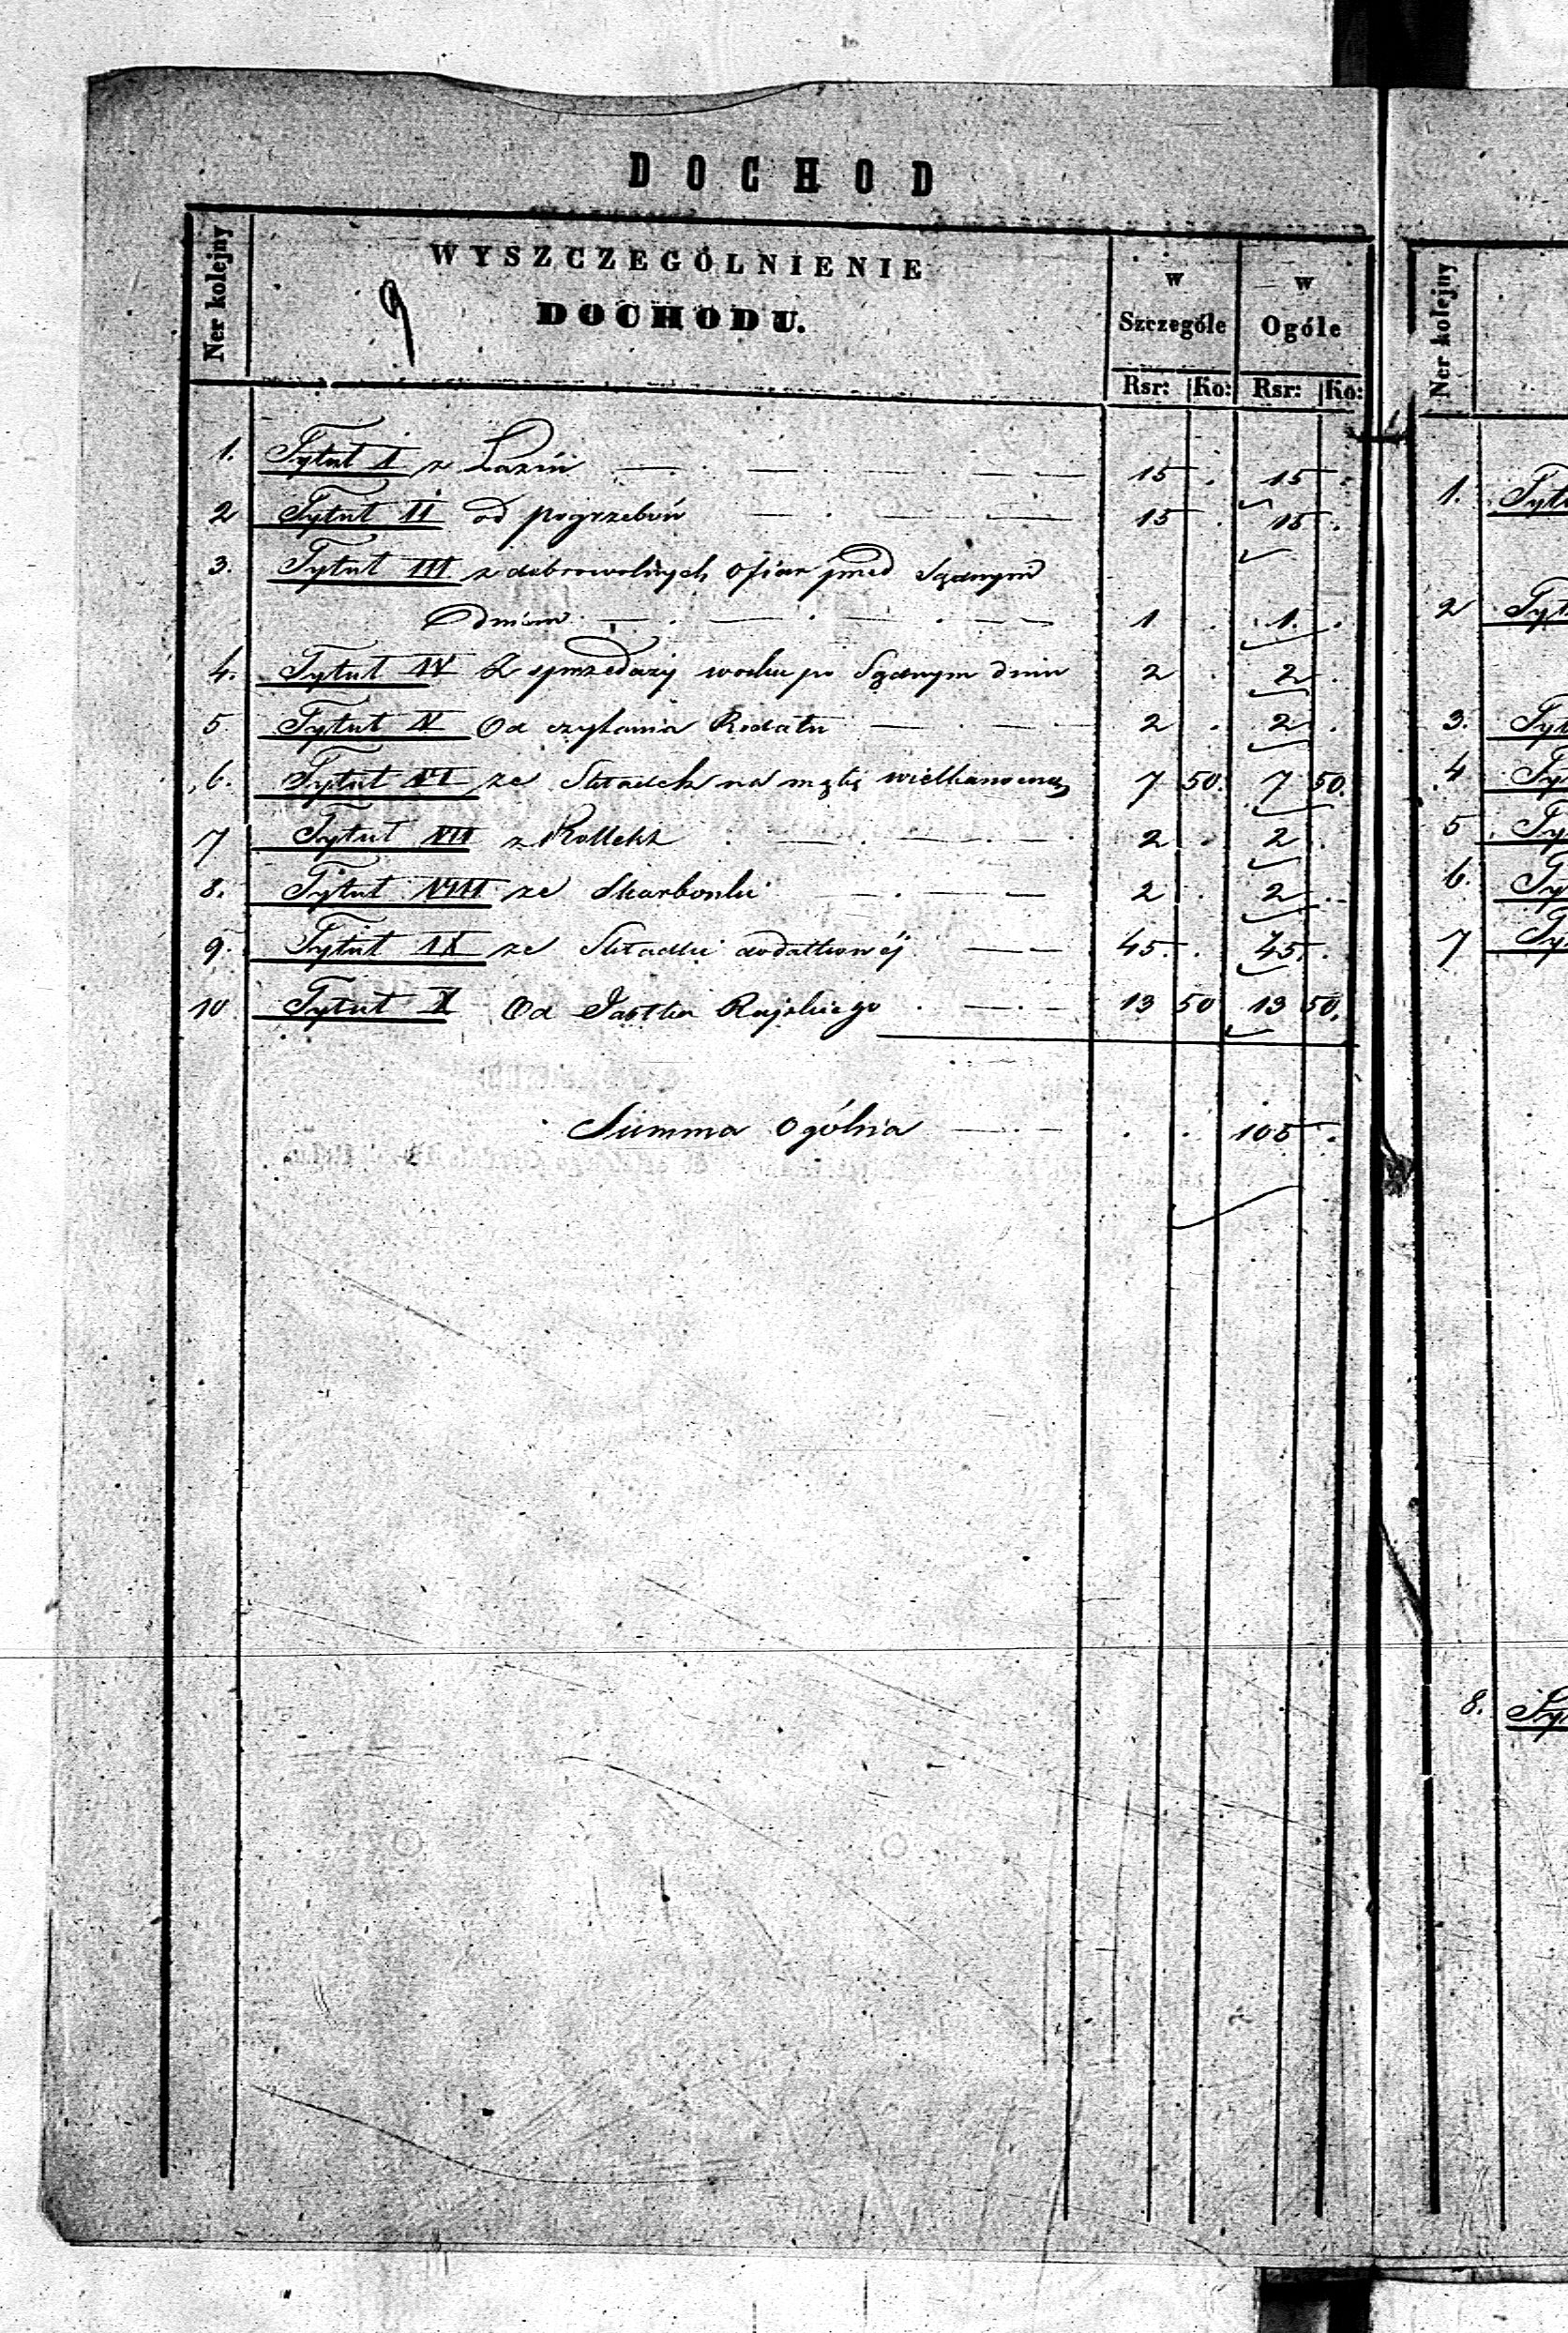 DOCHOD
Ner kolejny
WYSZCZEGÓLNIENIE
DOCHODU.
9
w Szczególe
w Ogóle
Rsr: Ko: Rsr: Ko:
1. Tytuł I z Łaźni 15 . 15 .
2 Tytuł II od pogrzebów 15 . 15 .
3. Tytuł III z dobrowolnych ofiar przed Sądnym
Dniem 1 . 1 .
4. Tytuł IV Z sprzedaży wosku po Sądnym dniu 2 . 2 .
5 Tytuł V Od czytania Rodału 2 . 2 .
6. Tytuł VI ze Składek na mąkę wielkanocną 7 50. 7 50.
7 Tytuł VII z Kollekt 2 . 2 .
8. Tytuł VIII ze Skarbonki 2 . 2 .
9. Tytuł IX ze Składki dodatkowéj 45 . 45 .
10 Tytuł X Od Rajskiego 13 50 13 50.
Summa Ogólna . . 105 .
Ner kolejny
1.
2
3.
4
5
6.
7
8.